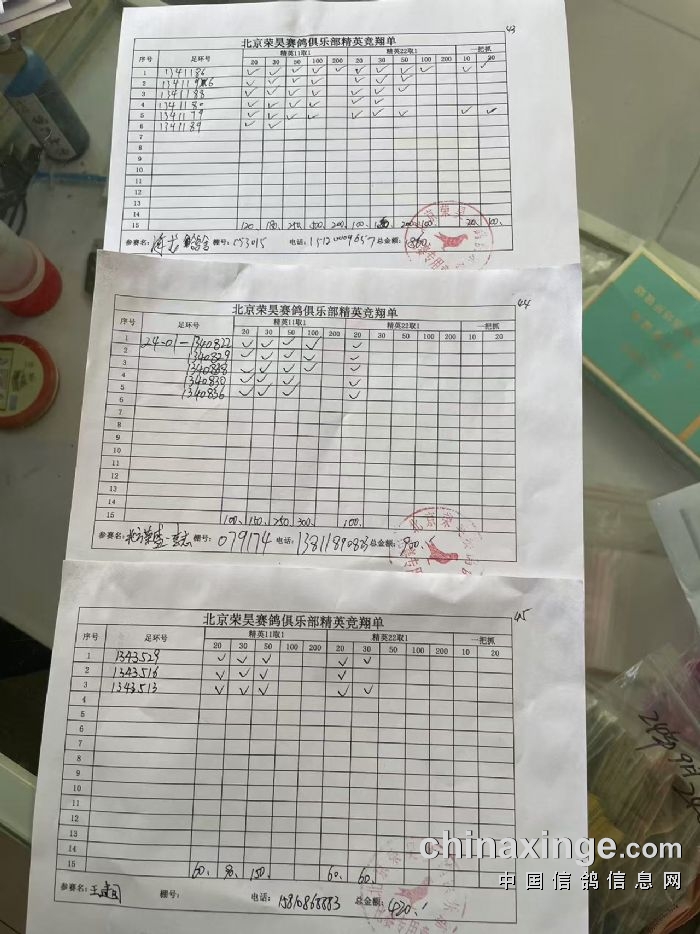 43
北京荣昊赛鸽俱乐部精英竞翔单
序号 足环号 精英11取1 精英22取1 一把抓
20 30 50 100 200 20 30 50 100 200 10 20
1 1341186 ✓ ✓ ✓ ✓ ✓ ✓ ✓ ✓ ✓ ✓ ✓
2 ✓ ✓ ✓ ✓ ✓ ✓ ✓
3 1341188 ✓ ✓ ✓ ✓ ✓ ✓ ✓
4 1341180 ✓ ✓ ✓ ✓ ✓ ✓
5 1341179 ✓ ✓ ✓ ✓ ✓ ✓
6 1341189 ✓ ✓
7
8
9
10
11
12
13
14
15 120、 180、 250、 500、 200、 100、 200、 100、 20、 100、
参赛名: 棚号: 053015 电话: 总金额:
44
北京荣昊赛鸽俱乐部精英竞翔单
序号 足环号 精英11取1 精英22取1 一把抓
20 30 50 100 200 20 30 50 100 200 10 20
1 24-01-1340822 ✓ ✓ ✓ ✓ ✓
2 1340829 ✓ ✓ ✓ ✓ ✓
3 1340838 ✓ ✓ ✓ ✓ ✓
4 1340830 ✓ ✓ ✓ ✓
5 1340836 ✓ ✓ ✓ ✓
6
7
8
9
10
11
12
13
14
15 100、 150、 250、 300、 100、
参赛名: 棚号: 079174 电话: 总金额: 900、
45
北京荣昊赛鸽俱乐部精英竞翔单
序号 足环号 精英11取1 精英22取1 一把抓
20 30 50 100 200 20 30 50 100 200 10 20
1 1343529 ✓ ✓ ✓ ✓ ✓
2 1343516 ✓ ✓ ✓ ✓
3 1343513 ✓ ✓ ✓ ✓ ✓
4
5
6
7
8
9
10
11
12
13
14
15 60、 90、 150、 60、 60、
参赛名: 棚号: 电话: 15810868883 总金额: 420、
chinaxinge.com
中国信鸽信息网